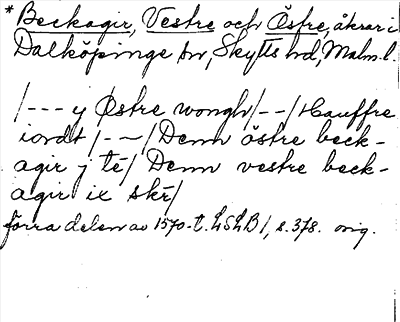 * Beckagir, Vestre och Östre, åkrar i
Dalköpinge sn, Skytts hd, Malm. l.
/--- y Østre wongh/--/Hauffre
iordt/-~-/Denn östre beck-
agir j té/ Denn vestre beck-
agir ix skr/
förra delen av 1570-t. LSLB 1, s. 378. orig.